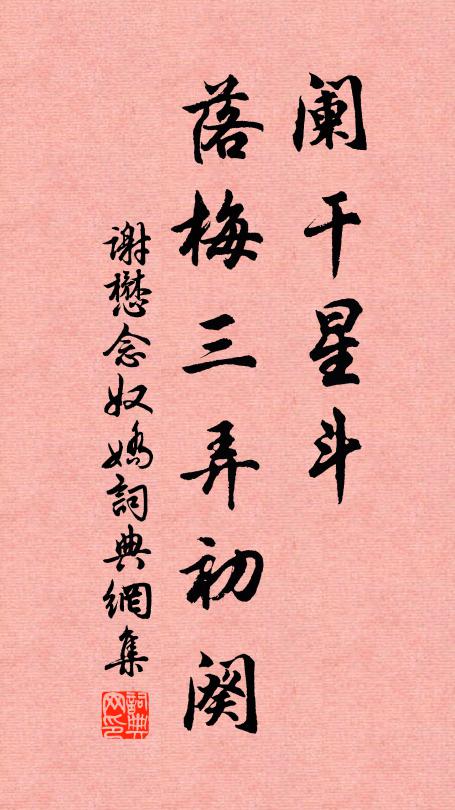 阑干星斗
落梅三弄初阕
谢懋念奴娇詞典網集
詞典网印